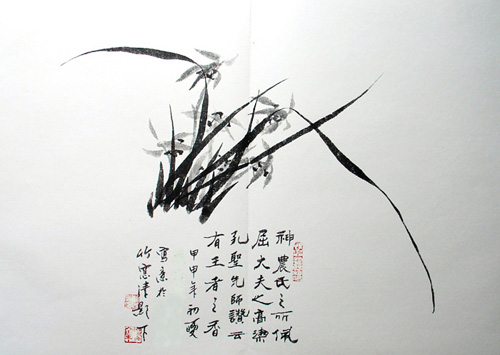 神農氏之所佩
屈大夫之高潔
孔聖先師讚云
有王者之香
甲申年初夏
寫於
竹窓清影下